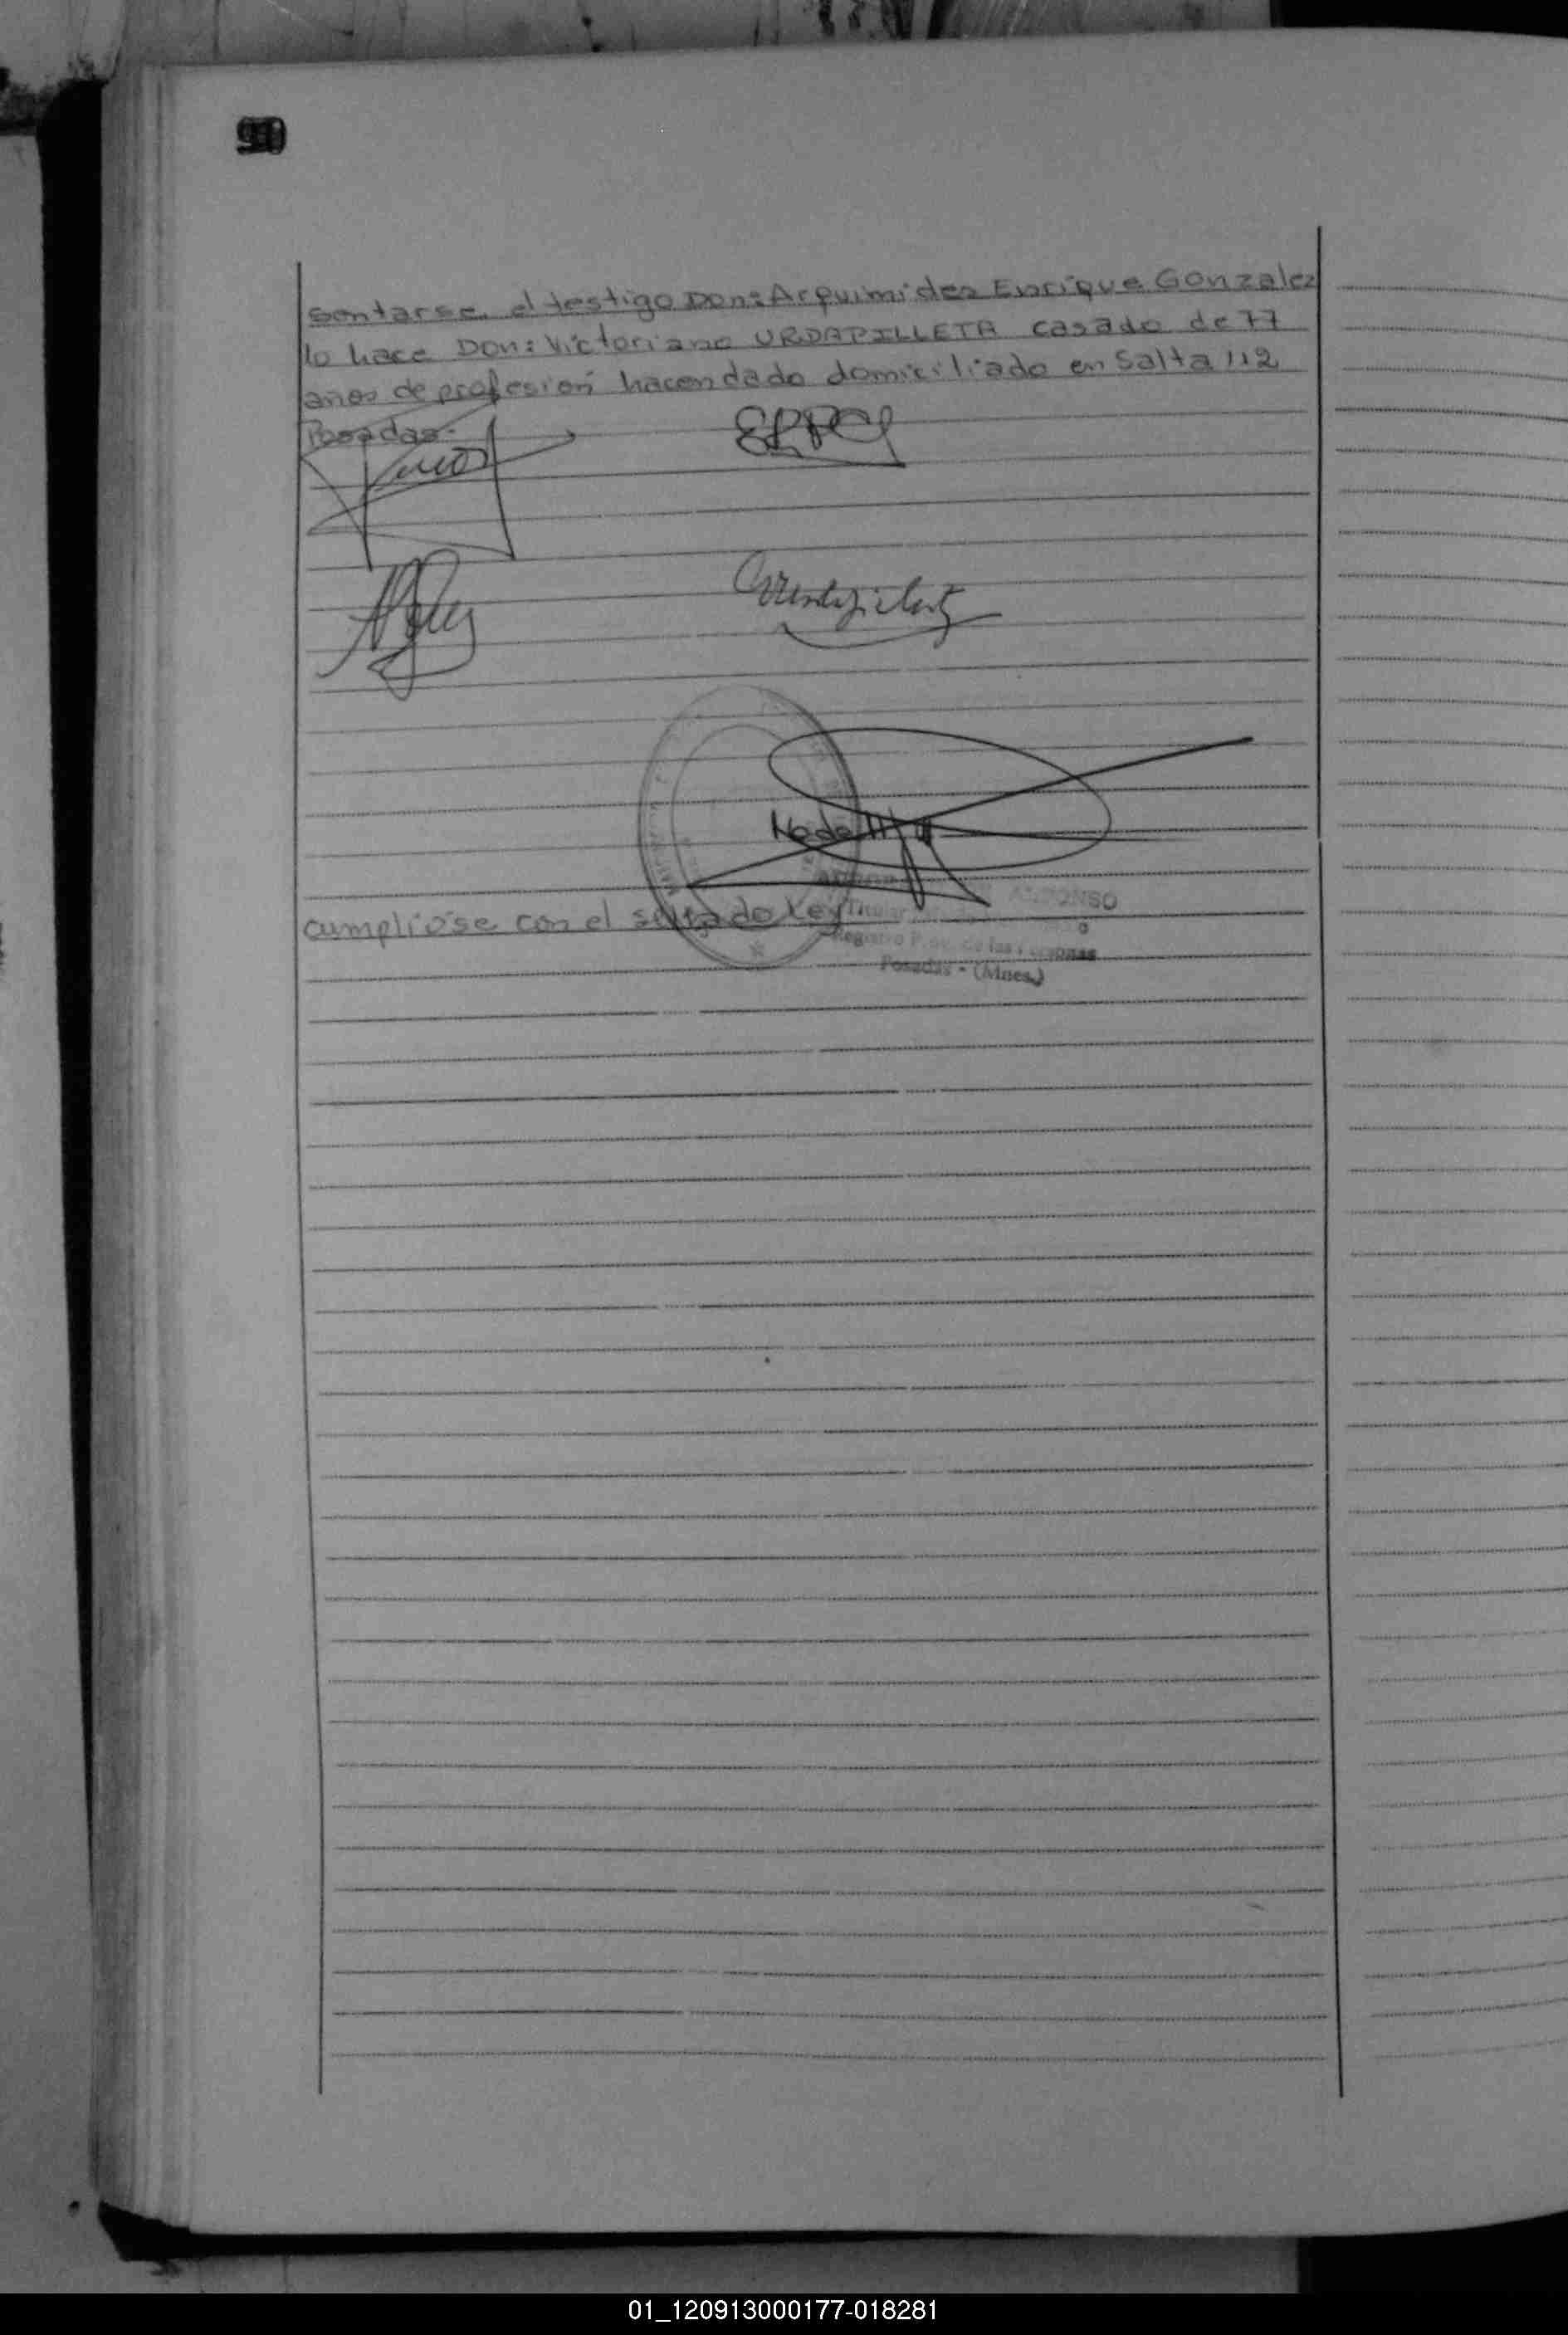 90
sentarse. el testigo Don: Arquimides Enrique Gonzalez
lo hace Don: Victoriano URDAPILLETA casado de 77
años de profesión hacendado domiciliado en Salta 112
Posadas.-
cumplióse con el sellado Ley
ALFONSO
Titular
Registro Prov. de las Personas
Posadas - (Mnes.)
01_120913000177-018281